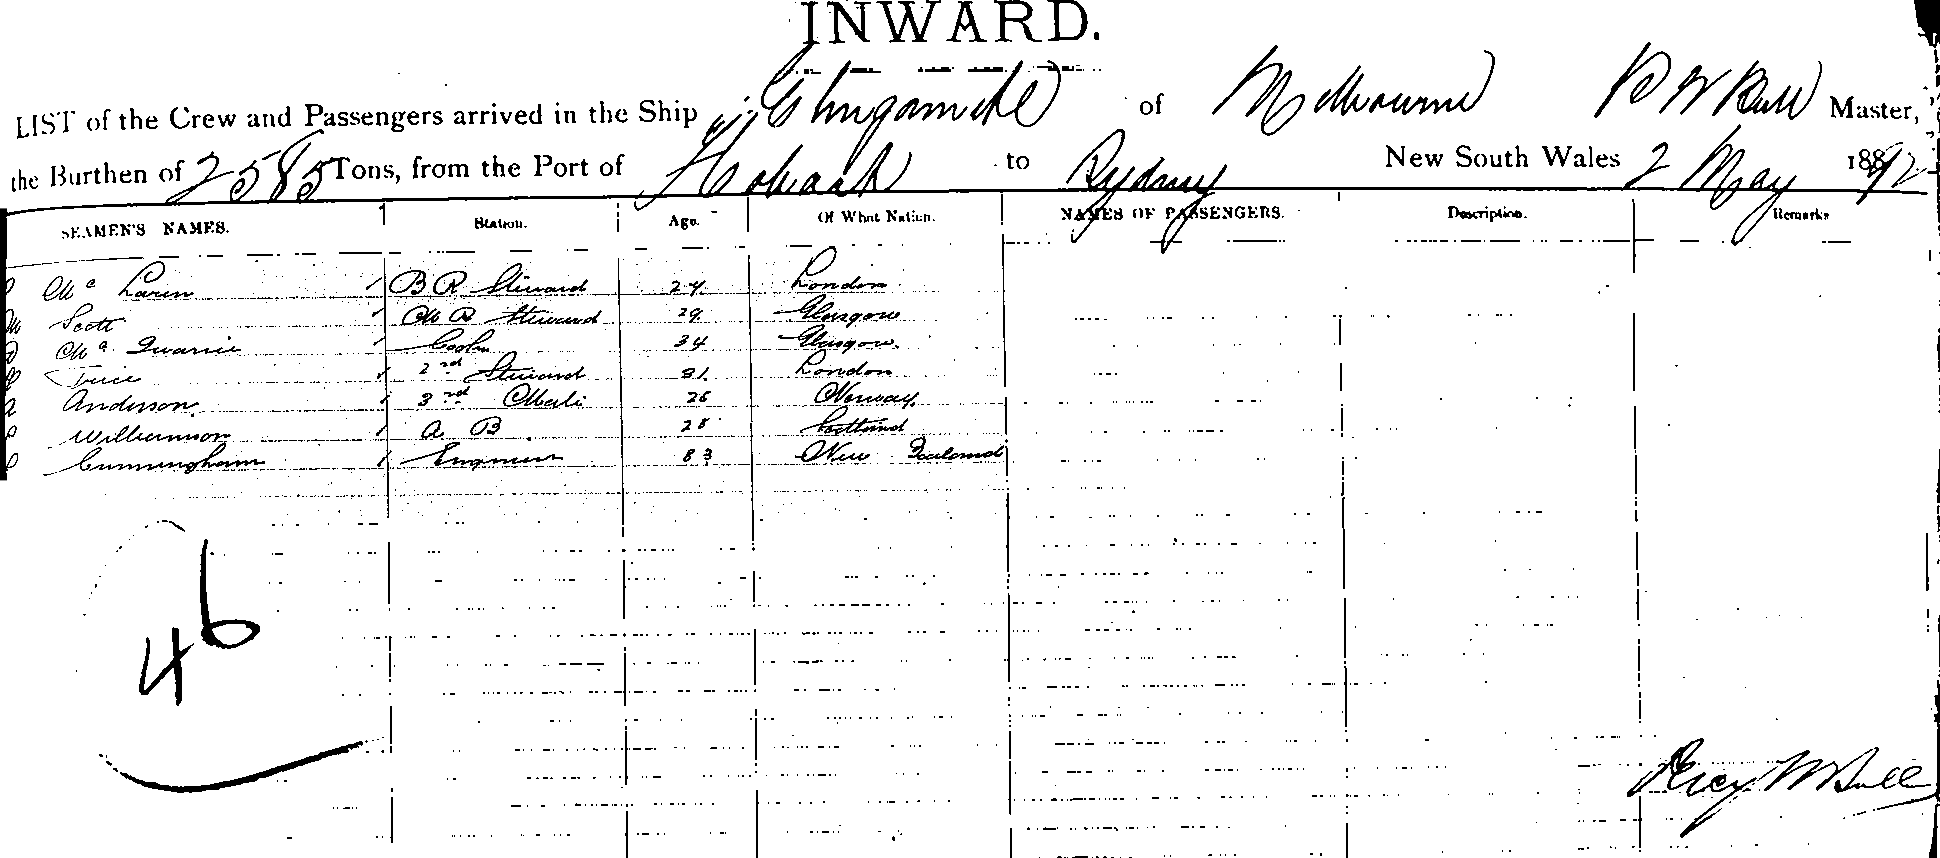 INWARD.
LIST of the Crew and Passengers arrived in the Ship Elingamite of Melbourne P W Bull Master,
the Burthen of 2585 Tons, from the Port of Hobart to Sydney New South Wales 2 May 1892
SEAMEN'S NAMES. Station. Age. Of What Nation. NAMES OF PASSENGERS. Description. Remarks
Mc Laren B R Steward 24 London
Scott M R Steward 29 Glasgow
Mc Quarrie Cook 34 Glasgow
2nd Steward 31 London
Anderson 3rd Mate 26 Norway
Williamson A B 28 Scotland
Cunningham Engineer 33 New Zealand
46
Percy W Bull